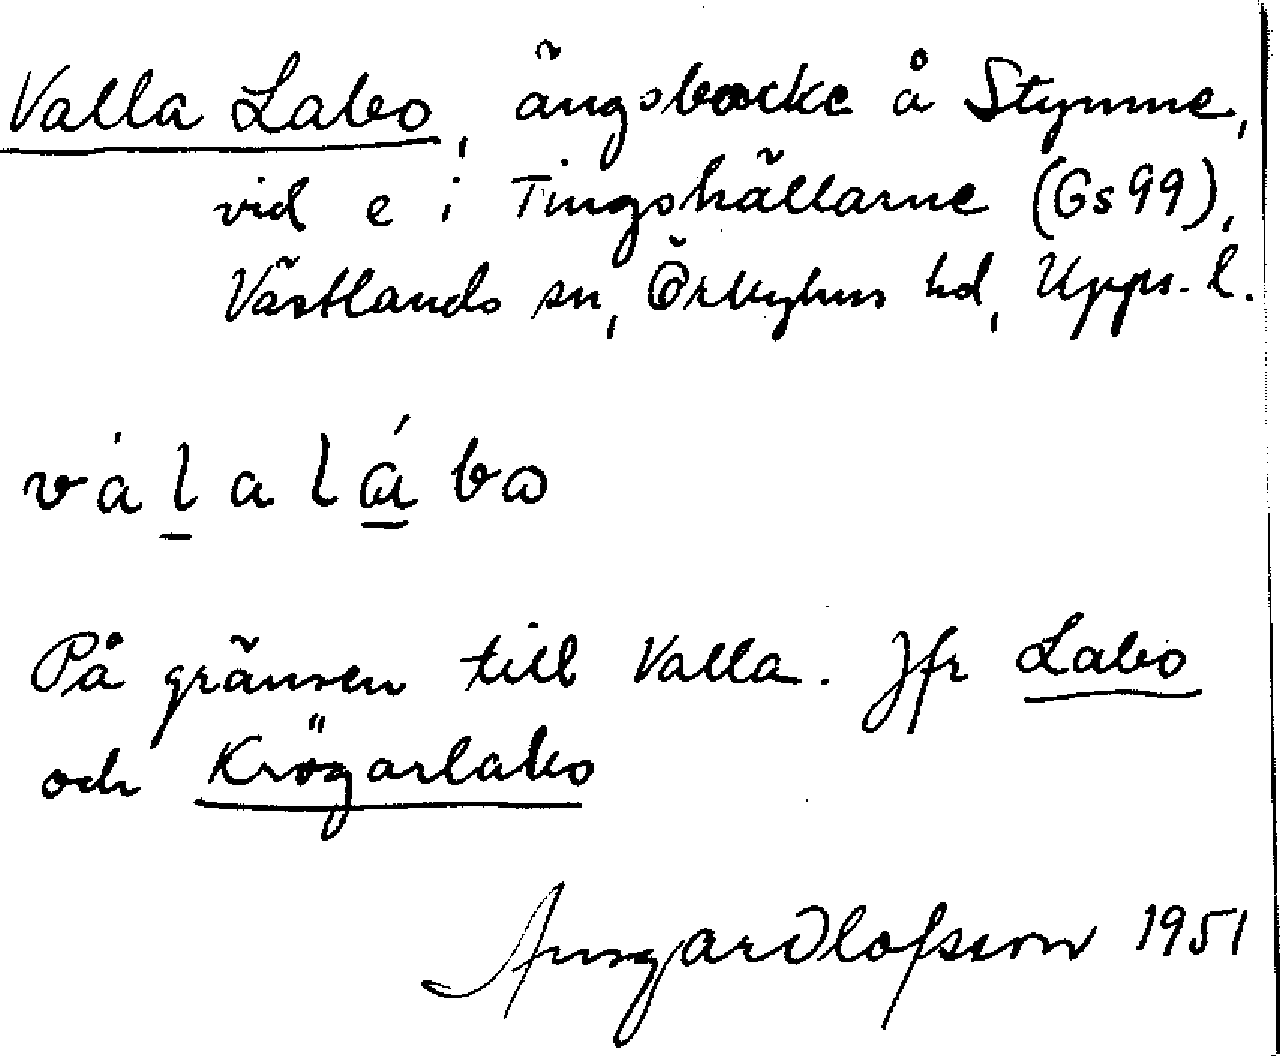 Valla Labo, ängsbacke å Stymne,
vid e i Tingshällarne (Gs 99),
Västlands sn, Örbyhus hd, Upps. l.
válalábo
På gränsen till Valla. Jfr Labo
och Krögarlabo
Ansgar Olofsson 1951